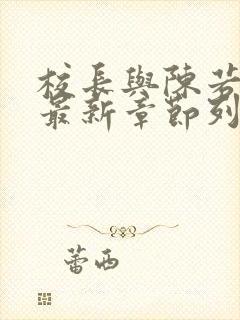 校長與陳芳
最新章節列
蕾西